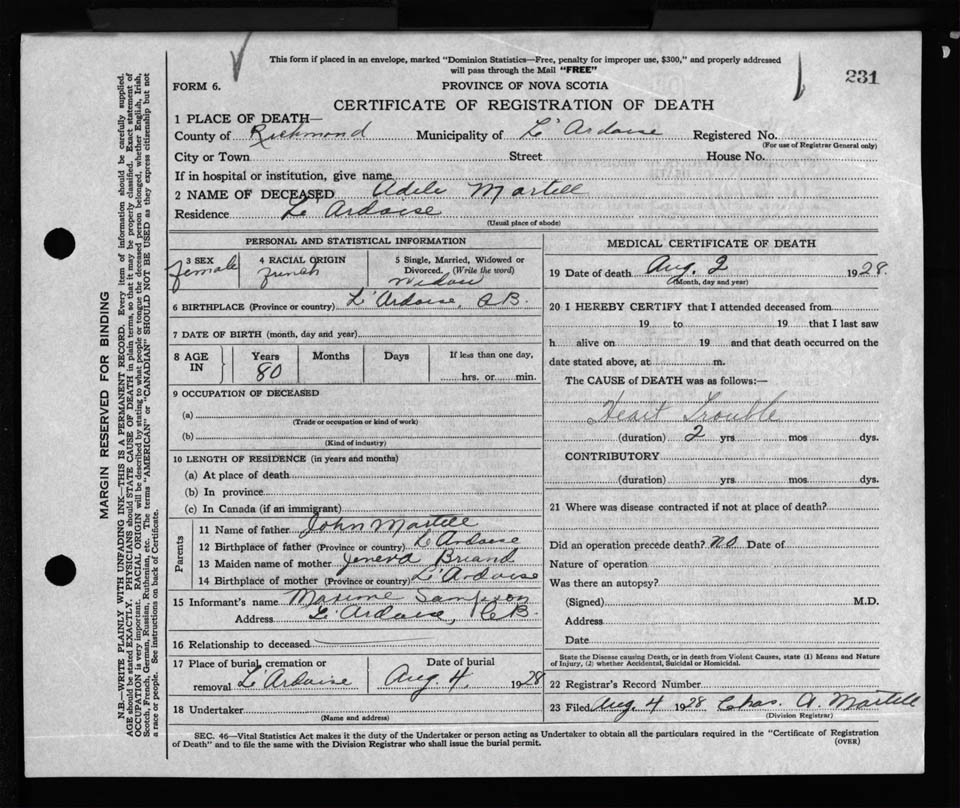 This form if placed in an envelope, marked "Dominion Statistics—Free, penalty for improper use, $300," and properly addressed
will pass through the Mail "FREE"
231
FORM 6.
PROVINCE OF NOVA SCOTIA
CERTIFICATE OF REGISTRATION OF DEATH
1 PLACE OF DEATH—
County of Richmond Municipality of L'Ardoise Registered No.
(For use of Registrar General only)
City or Town Street House No.
If in hospital or institution, give name
2 NAME OF DECEASED Adele Martell
Residence L'Ardoise
(Usual place of abode)
PERSONAL AND STATISTICAL INFORMATION
3 SEX 4 RACIAL ORIGIN 5 Single, Married, Widowed or
Divorced. (Write the word)
female French Widow
6 BIRTHPLACE (Province or country) L'Ardoise, C.B.
7 DATE OF BIRTH (month, day and year)
8 AGE IN Years Months Days If less than one day,
80 hrs. or min.
9 OCCUPATION OF DECEASED
(a)
(Trade or occupation or kind of work)
(b)
(Kind of industry)
10 LENGTH OF RESIDENCE (in years and months)
(a) At place of death
(b) In province
(c) In Canada (if an immigrant)
Parents
11 Name of father John Martell
12 Birthplace of father (Province or country) L'Ardoise
13 Maiden name of mother Jeneva Briand
14 Birthplace of mother (Province or country) L'Ardoise
15 Informant's name Maxime Sampson
Address L'Ardoise, C.B.
16 Relationship to deceased
17 Place of burial, cremation or Date of burial
removal L'Ardoise Aug. 4, 1928
18 Undertaker
(Name and address)
MEDICAL CERTIFICATE OF DEATH
19 Date of death Aug. 2 1928.
(Month, day and year)
20 I HEREBY CERTIFY that I attended deceased from
19 to 19 that I last saw
h alive on 19 and that death occurred on the
date stated above, at m.
The CAUSE of DEATH was as follows:—
Heart Trouble
(duration) 2 yrs. mos. dys.
CONTRIBUTORY
(duration) yrs. mos. dys.
21 Where was disease contracted if not at place of death?
Did an operation precede death? no Date of
Nature of operation
Was there an autopsy?
(Signed) M.D.
Address
Date
State the Disease causing Death, or in death from Violent Causes, state (1) Means and Nature
of Injury, (2) whether Accidental, Suicidal or Homicidal.
22 Registrar's Record Number
23 Filed Aug. 4 1928 Chas. A. Martell
(Division Registrar)
SEC. 46—Vital Statistics Act makes it the duty of the Undertaker or person acting as Undertaker to obtain all the particulars required in the "Certificate of Registration
of Death" and to file the same with the Division Registrar who shall issue the burial permit.
(OVER)
MARGIN RESERVED FOR BINDING
N.B.—WRITE PLAINLY WITH UNFADING INK—THIS IS A PERMANENT RECORD. Every item of information should be carefully supplied.
AGE should be stated EXACTLY. PHYSICIANS should STATE CAUSE OF DEATH in plain terms, so that it may be properly classified. Exact statement of
OCCUPATION is very important. RACIAL ORIGIN will be described by stating to what people or tongue the deceased person belonged, whether English, Irish,
Scotch, French, German, Russian, Ruthenian, etc. The terms "AMERICAN" or "CANADIAN" SHOULD NOT BE USED as they express citizenship but not
a race or people. See instructions on back of Certificate.